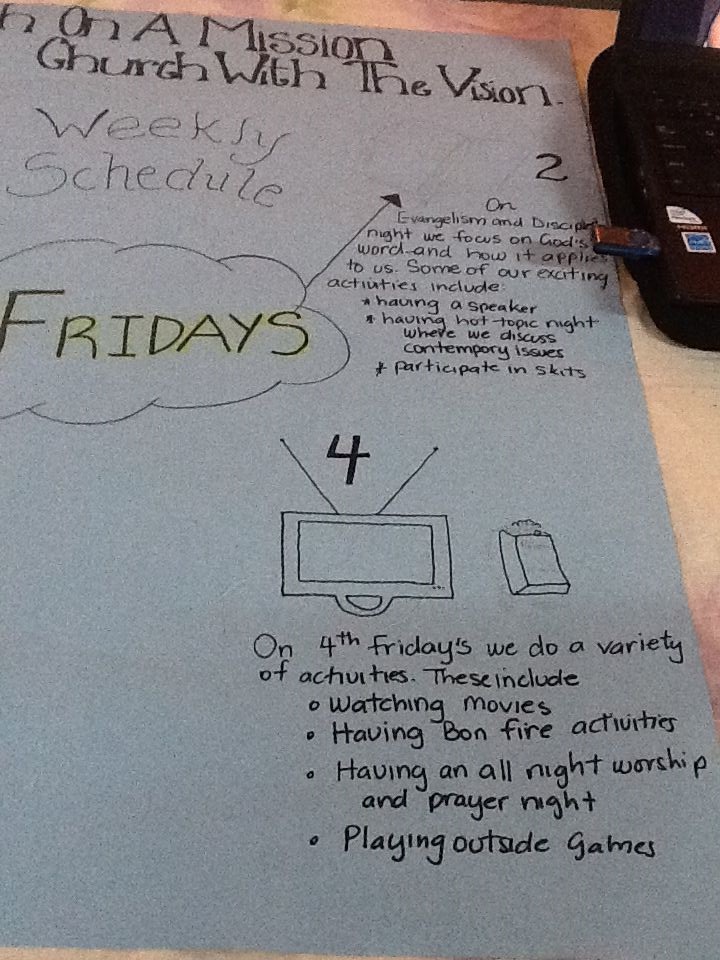 On A Mission
Church With The Vision.
Weekly
Schedule
2
On
Evangelism and
night we focus on God's
word and how it applies
to us. Some of our exciting
activities include:
* having a speaker
* having hot topic night
where we discuss
contempory issues
* participate in skits
FRIDAYS
4
On 4th Friday's we do a variety
of activities. These include
• Watching movies
• Having Bon fire activities
• Having an all night worship
and prayer night
• Playing outside Games